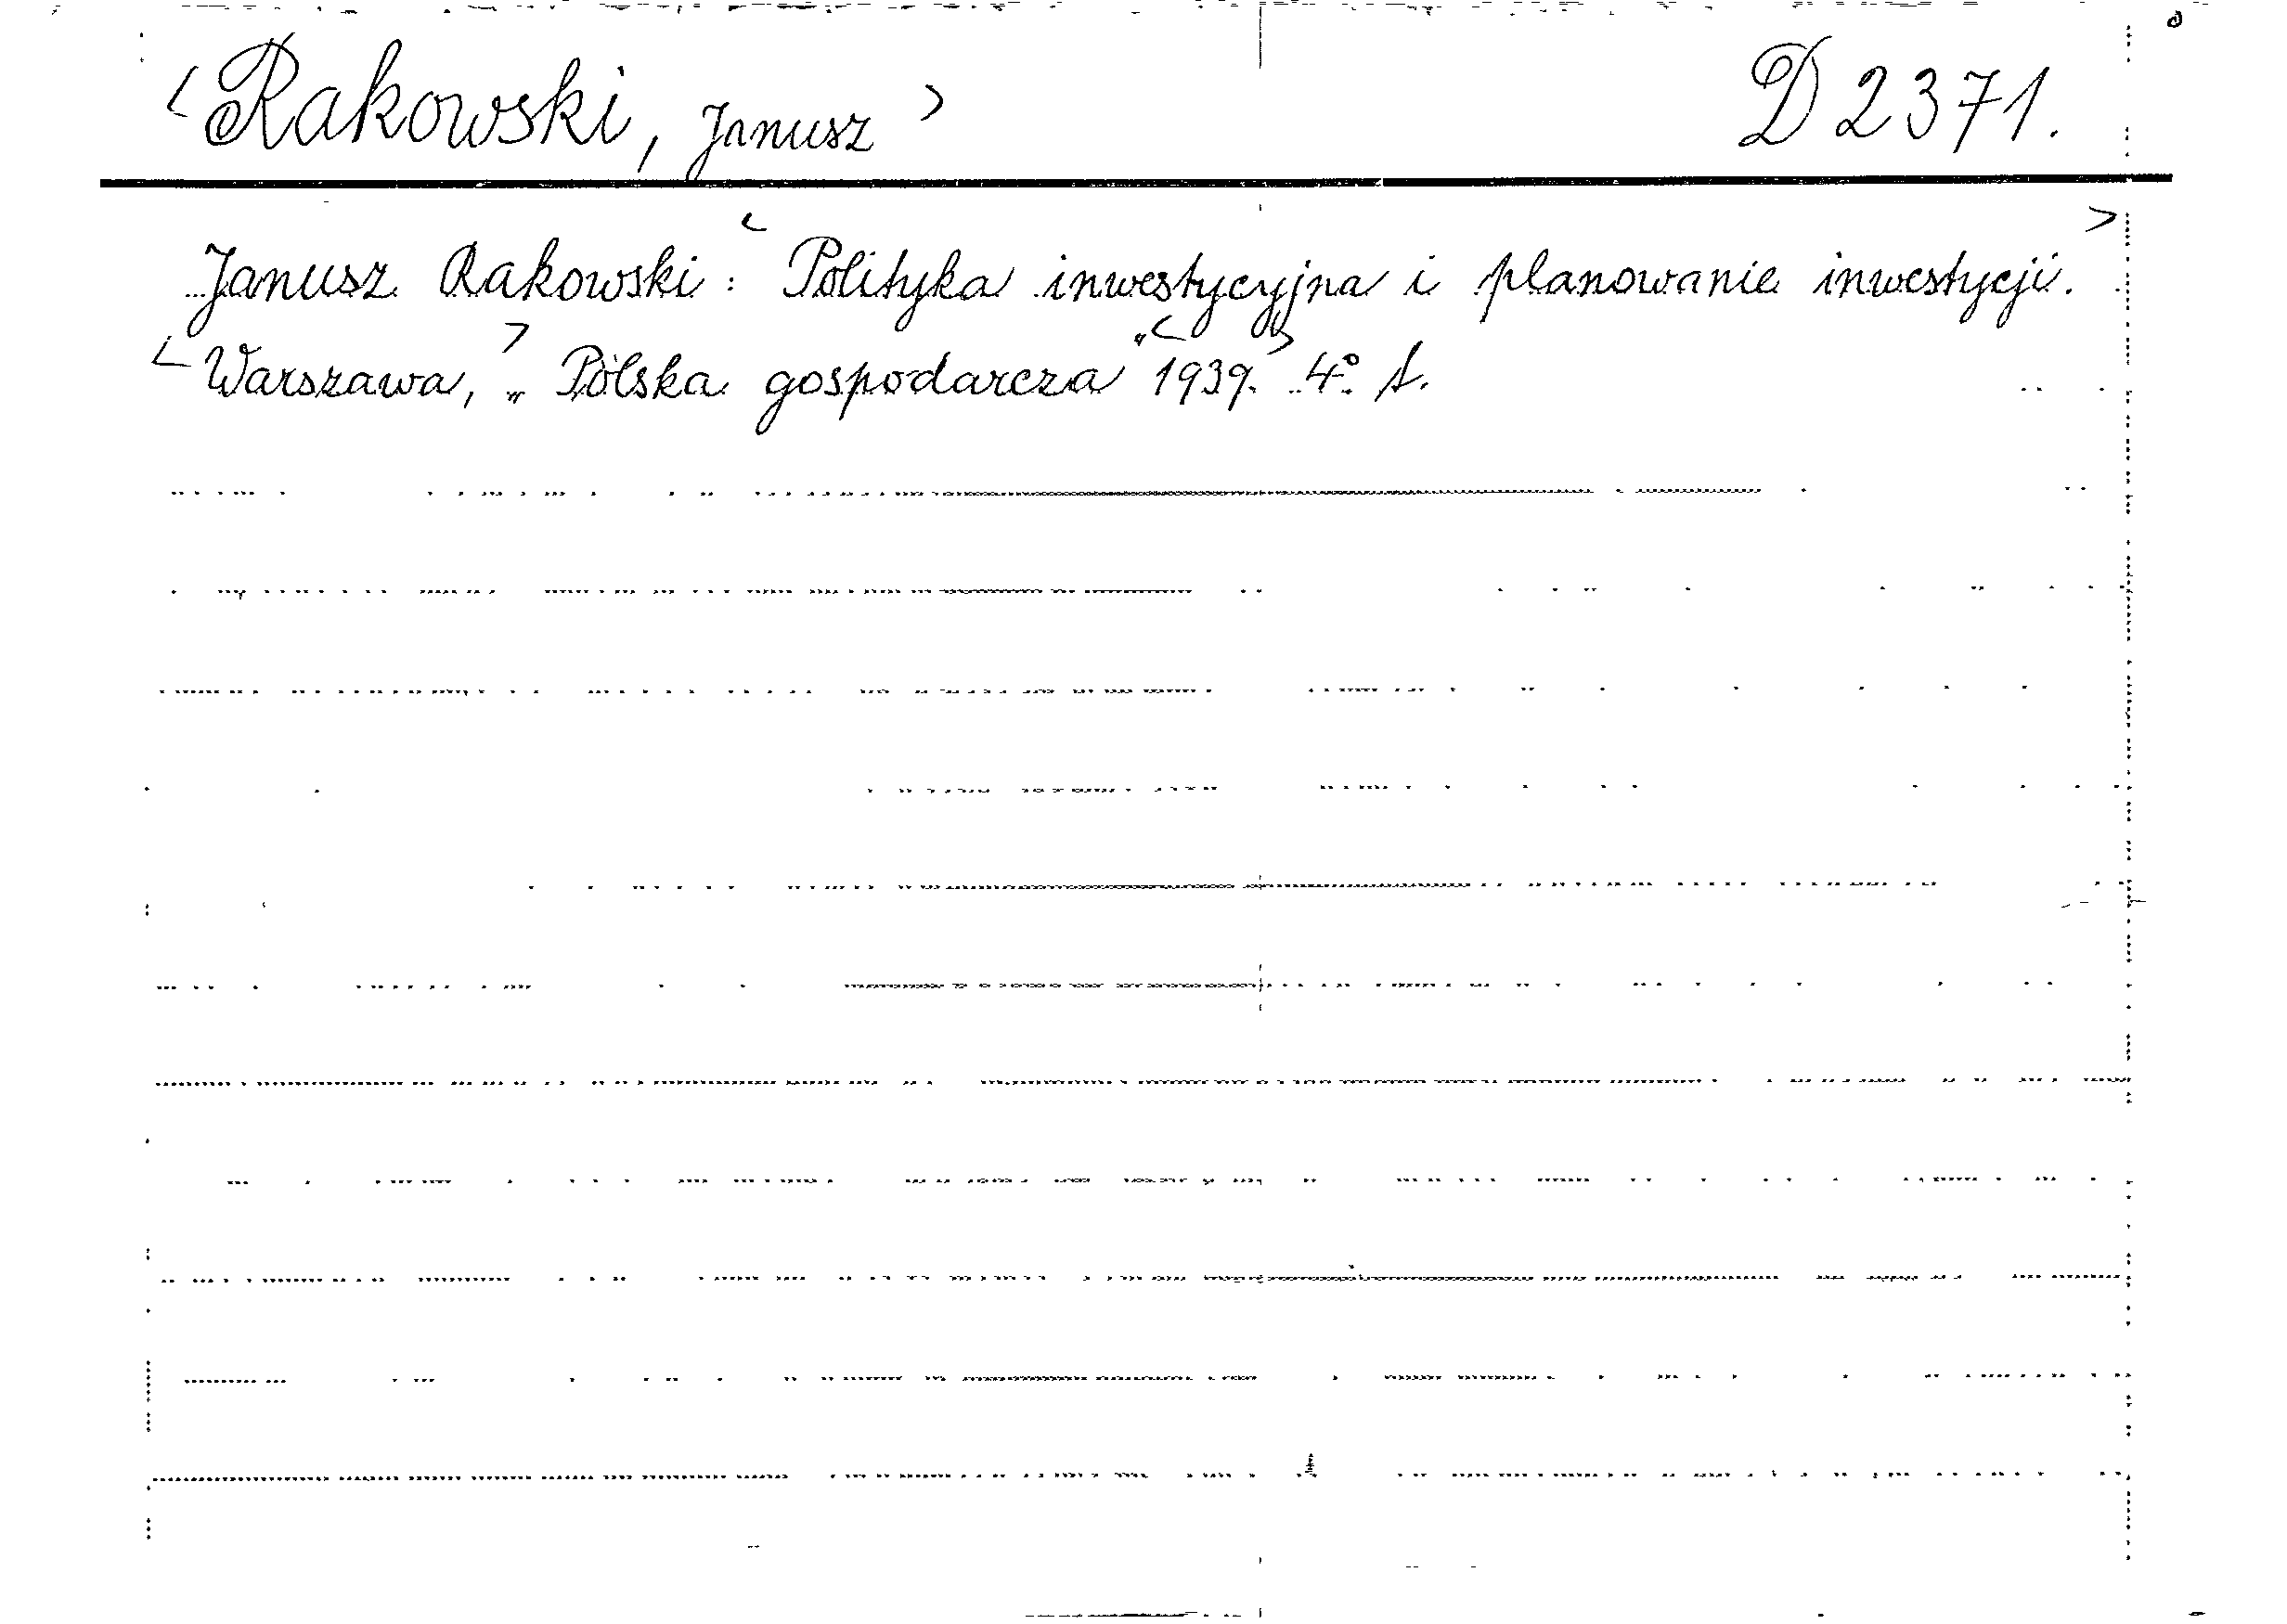 <Rakowski, Janusz> D 2371.
Janusz Rakowski: <Polityka inwestycyjna i planowanie inwestycji.>
<Warszawa,> „Polska gospodarcza" <1939.> 4°.